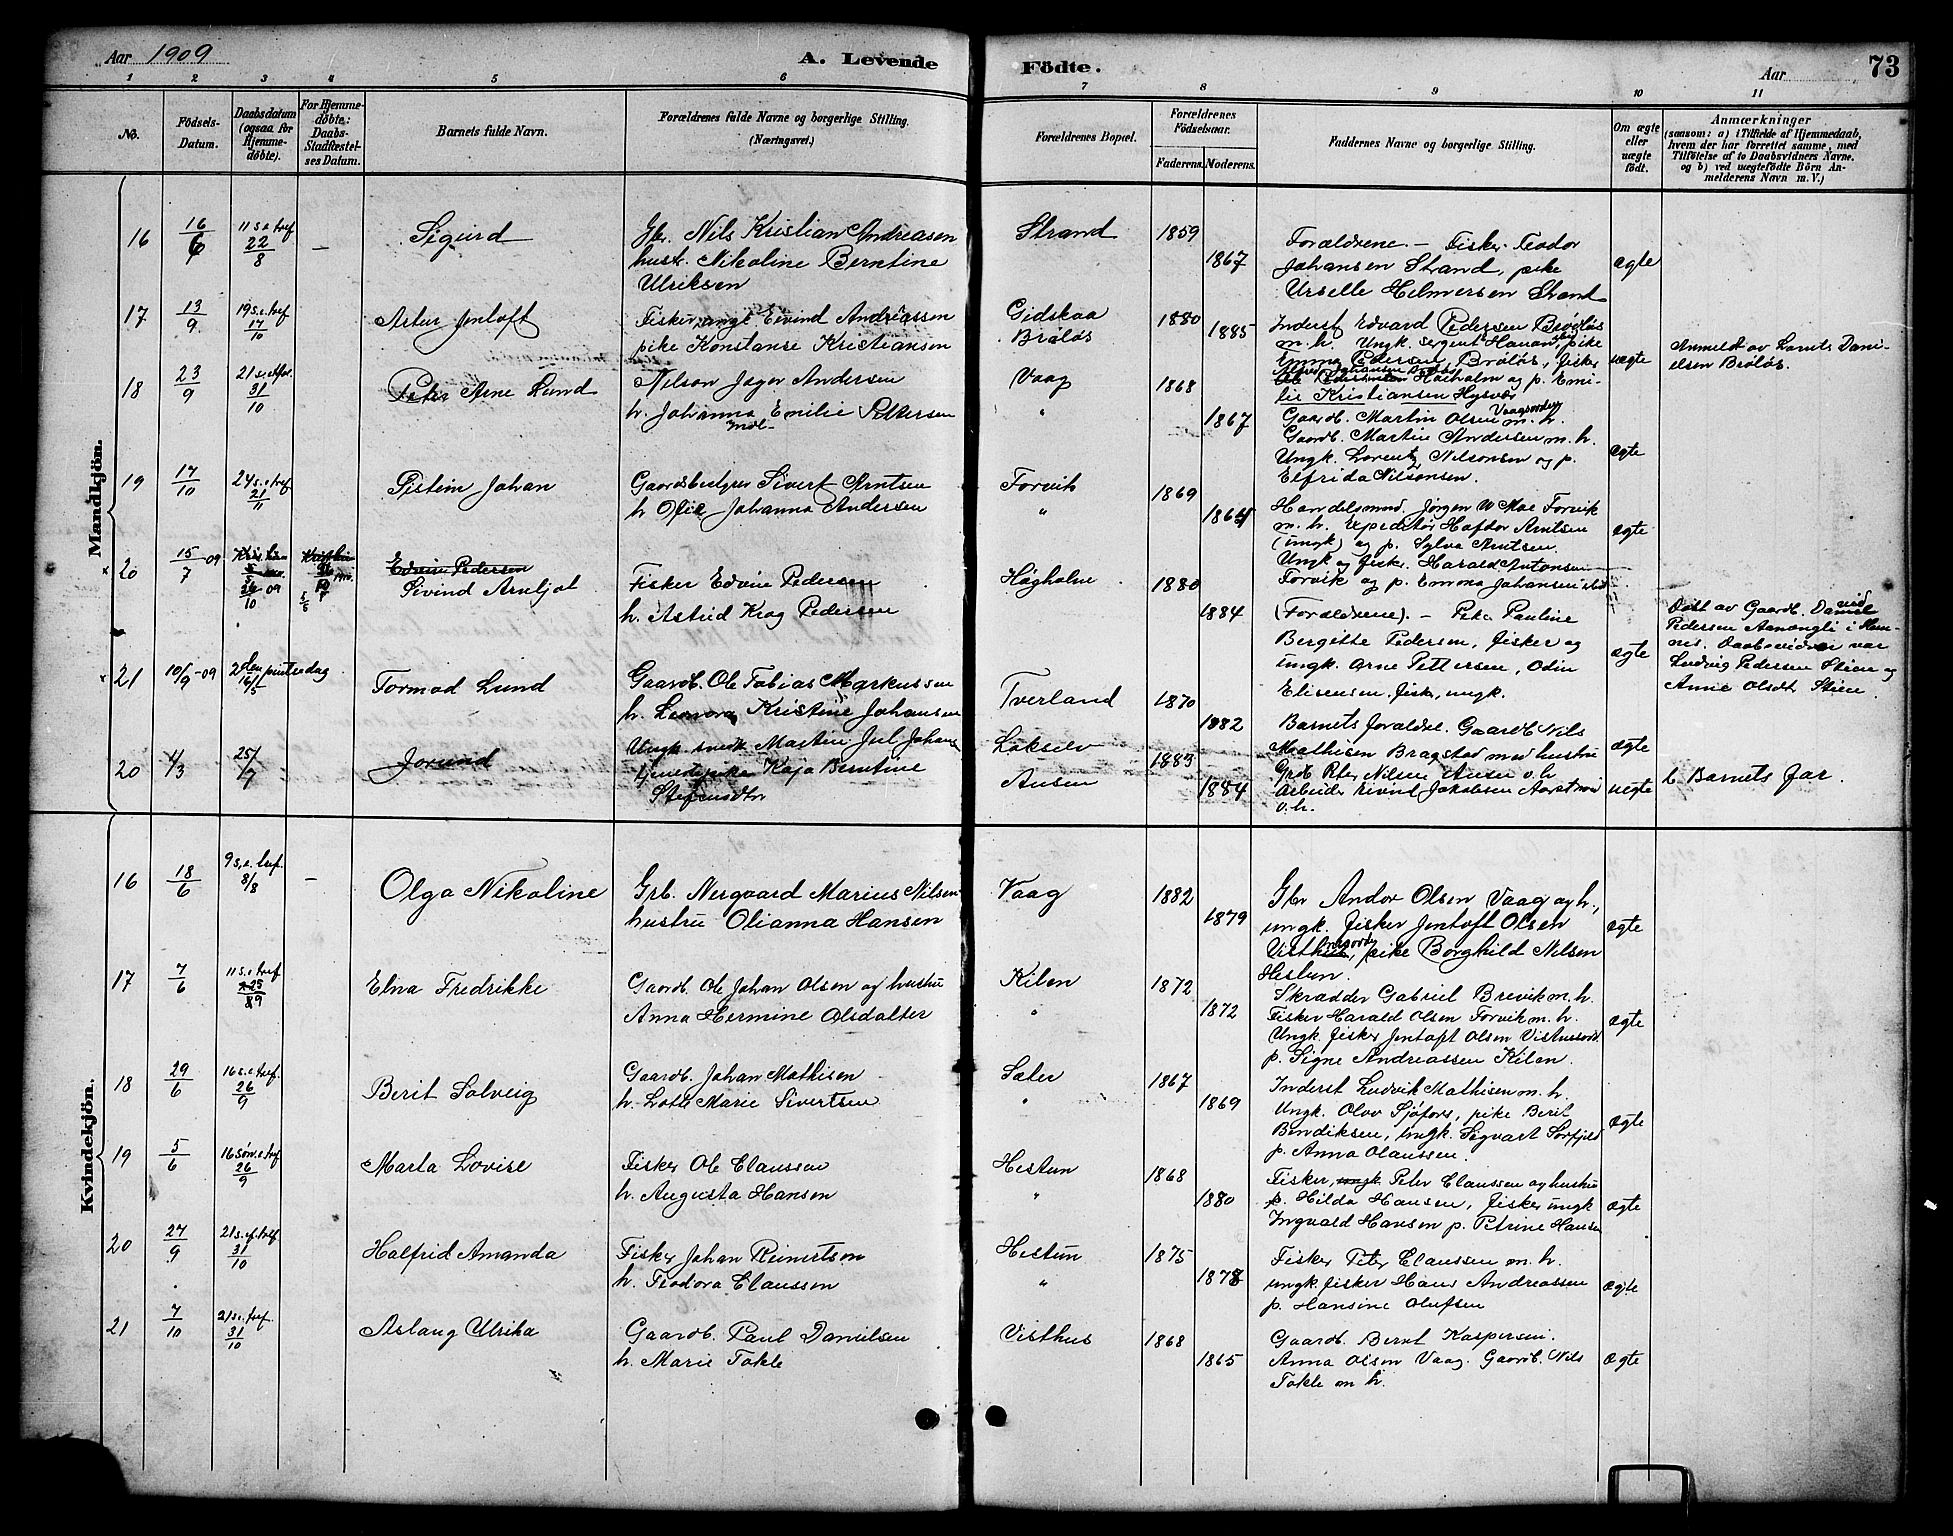 Aar 1909
A. Levende
Födte.
Aar
73
1 2 3 4 5 6 7 8 9 10 11
No.
Födsels-Datum.
Daabsdatum (ogsaa for Hjemme-döbte).
For Hjemme-döbte: Daabs-Stadfæstel-ses Datum.
Barnets fulde Navn.
Forældrenes fulde Navne og borgerlige Stilling. (Næringsvei.)
Forældrenes Bopæl.
Forældrenes Födselsaar.
Faderens. Moderens.
Faddernes Navne og borgerlige Stilling.
Om ægte eller uægte födt.
Anmærkninger
(saasom: a) i Tilfælde af Hjemmedaab, hvem der har forrettet samme, med Tilföielse af to Daabsvidners Navne, og b) ved uægtefödte Börn Anmelderens Navn m. V.)
Mandkjön.
16 16/6 11 s.e.tref 22/8 – Sigurd
Gbr. Nils Kristian Andreasen
hustr. Nikoline Berntine
Ulriksen
Strand 1859 1867
Forældrene. – Fisker Teodor
Johansen Strand, pike
Urselle Hilmersen Strand
ægte
17 13/9 19 s.e.tref 17/10 Artur Jentoft
Fisker, ungk Eivind Andreassen
pike Konstanse Kristiansen
Gidskaa
Bröløs
1880 1885
Inderst Edvard Pedersen Bröløs
m. h. Ungk. sergent
Emma Pedersen Bröløs, fisker
uægte
Anmeldt av Lornts Dani-
elsen Bröløs.
18 23/9 31/10 Peter Arne Lund
Nilson Jæger Andersen
h. Johanna Emilie Pettersen
Vaag
"
1868 1867
Høiholm og p. Emi-
lie Kristiansen Hysvær
Gaardb. Martin Olsen m. h.
Gaardb. Martin Andersen m. h.
Ungk. Lorentz Nilsonsen og p.
Elfrida Nilsonsen.
ægte
19 17/10 24 s.e.tref 21/11 Pistein Johan
Gaardsbestyrer Sivert Arntsen
h Ofie Johanna Andersen
Forvik
"
1869 1864
Handelsmand. Jørgen W Moe Forvik
m. h. Expeditør Haftor Arntsen
(ungk) og p. Sylva Arntsen.
Ungk og fisk. Harald Antonsen
Forvik og p. Emma Johansen
ægte
20 15/7 09 26/10 09 Edvin Pedersen
Eivind Arneljot
Fisker Edvin Pedersen
h. Astrid Krog Pedersen
Høgholm
1880 1884
(Forældrene). – Peka Pauline
Bergitte Pedersen, fisker og
ungk. Arne Pettersen, Odin
Elisensen, fisk, ungk.
ægte
Døbt av Gaardb. Daniel
Pedersen Aanangli i Hem-
nes. Daabsvidner var
Ludvig Pedersen Stien og
Anne Olsdt Stien.
21 10/9-09 2den pintsedag 16/5 Tormod Lund
Gaardb. Ole Tobias Markussen
h. Leonora Kristine Johansen
Tverland
1870 1882
Barnets foreldre. Gaardb Nils
Mathisen Bragstad med hustru
ægte
20 4/3 25/7 Jorund
Ungk. snedk Martin Jul Johans
tjenestepike Kaja Berntine
Stefensdtr
Lakselv
Ausen
1883 1884
Grdb. Peter Nilsen Ausen o. h
Arbeider Eivind Jakobsen
o. h.
uegte
b. Barnets far.
Kvindekjön.
16 18/6 9 s.e. tref. 8/8 – Olga Nikoline
Grb. Nergaard Marius Nilsen
hustru Olianna Hansen
Vaag
1882 1879
Gbr Andor Olsen Vaag og h.,
ungk. fisker Jentoft Olsen
Visthus, pike Borghild Nilsen
Hestun.
ægte
17 7/6 11 s.e.tref 29/8 Elna Fredrikke
Gaardb. Ole Johan Olsen og hustru
Anna Hermine Olsdatter
Kilen
"
1872 1872
Skrædder Gabriel Brevik m. h.
Fisker Harald Olsen Forvik m. h.
Ungk. fisker Jentoft Olsen
p. Signe Andreassen Kilen.
ægte
18 29/6 16 s.e.tref. 26/9 Berit Solveig
Gaardb. Johan Mathisen
h. Lotte Marie Sivertsen
Sæter
"
1867 1869
Inderst Ludvik Mathisen m. h.
Ungk. Olav Sjøfors, pike Berit
Bendiksen, ungk. Sigvart Sørfjeld
p. Anna Olaussen.
ægte
19 5/6 16 søn.e.tref 26/9 Marta Lovise
Fisker Ole Claussen
h. Augusta Hansen
Hestun
"
1868 1880
Fisker, ungk Peter Claussen og hustru
p. Hilda Hansen, fisker ungk
Ingvald Hansen p. Petrine Hansen
ægte
20 27/9 21 s.e.tref 31/10 Halfrid Amanda
Fisker Johan Reinertsen
h. Teodora Claussen
Hestun
"
1875 1878
Fisker Peter Claussen m. h.
ungk. fisker Hans Andreassen
p. Hansine Olufsen
ægte
21 7/10 21 s.e.tref. 31/10 Aslaug Ulrika
Gaardb. Paul Danielsen
h. Marie Tokle
Visthus
1868 1865
Gaardb. Bernt Kaspersen.
Anna Olsen Vaag. Gaardb. Nils
Tokle m h.
ægte